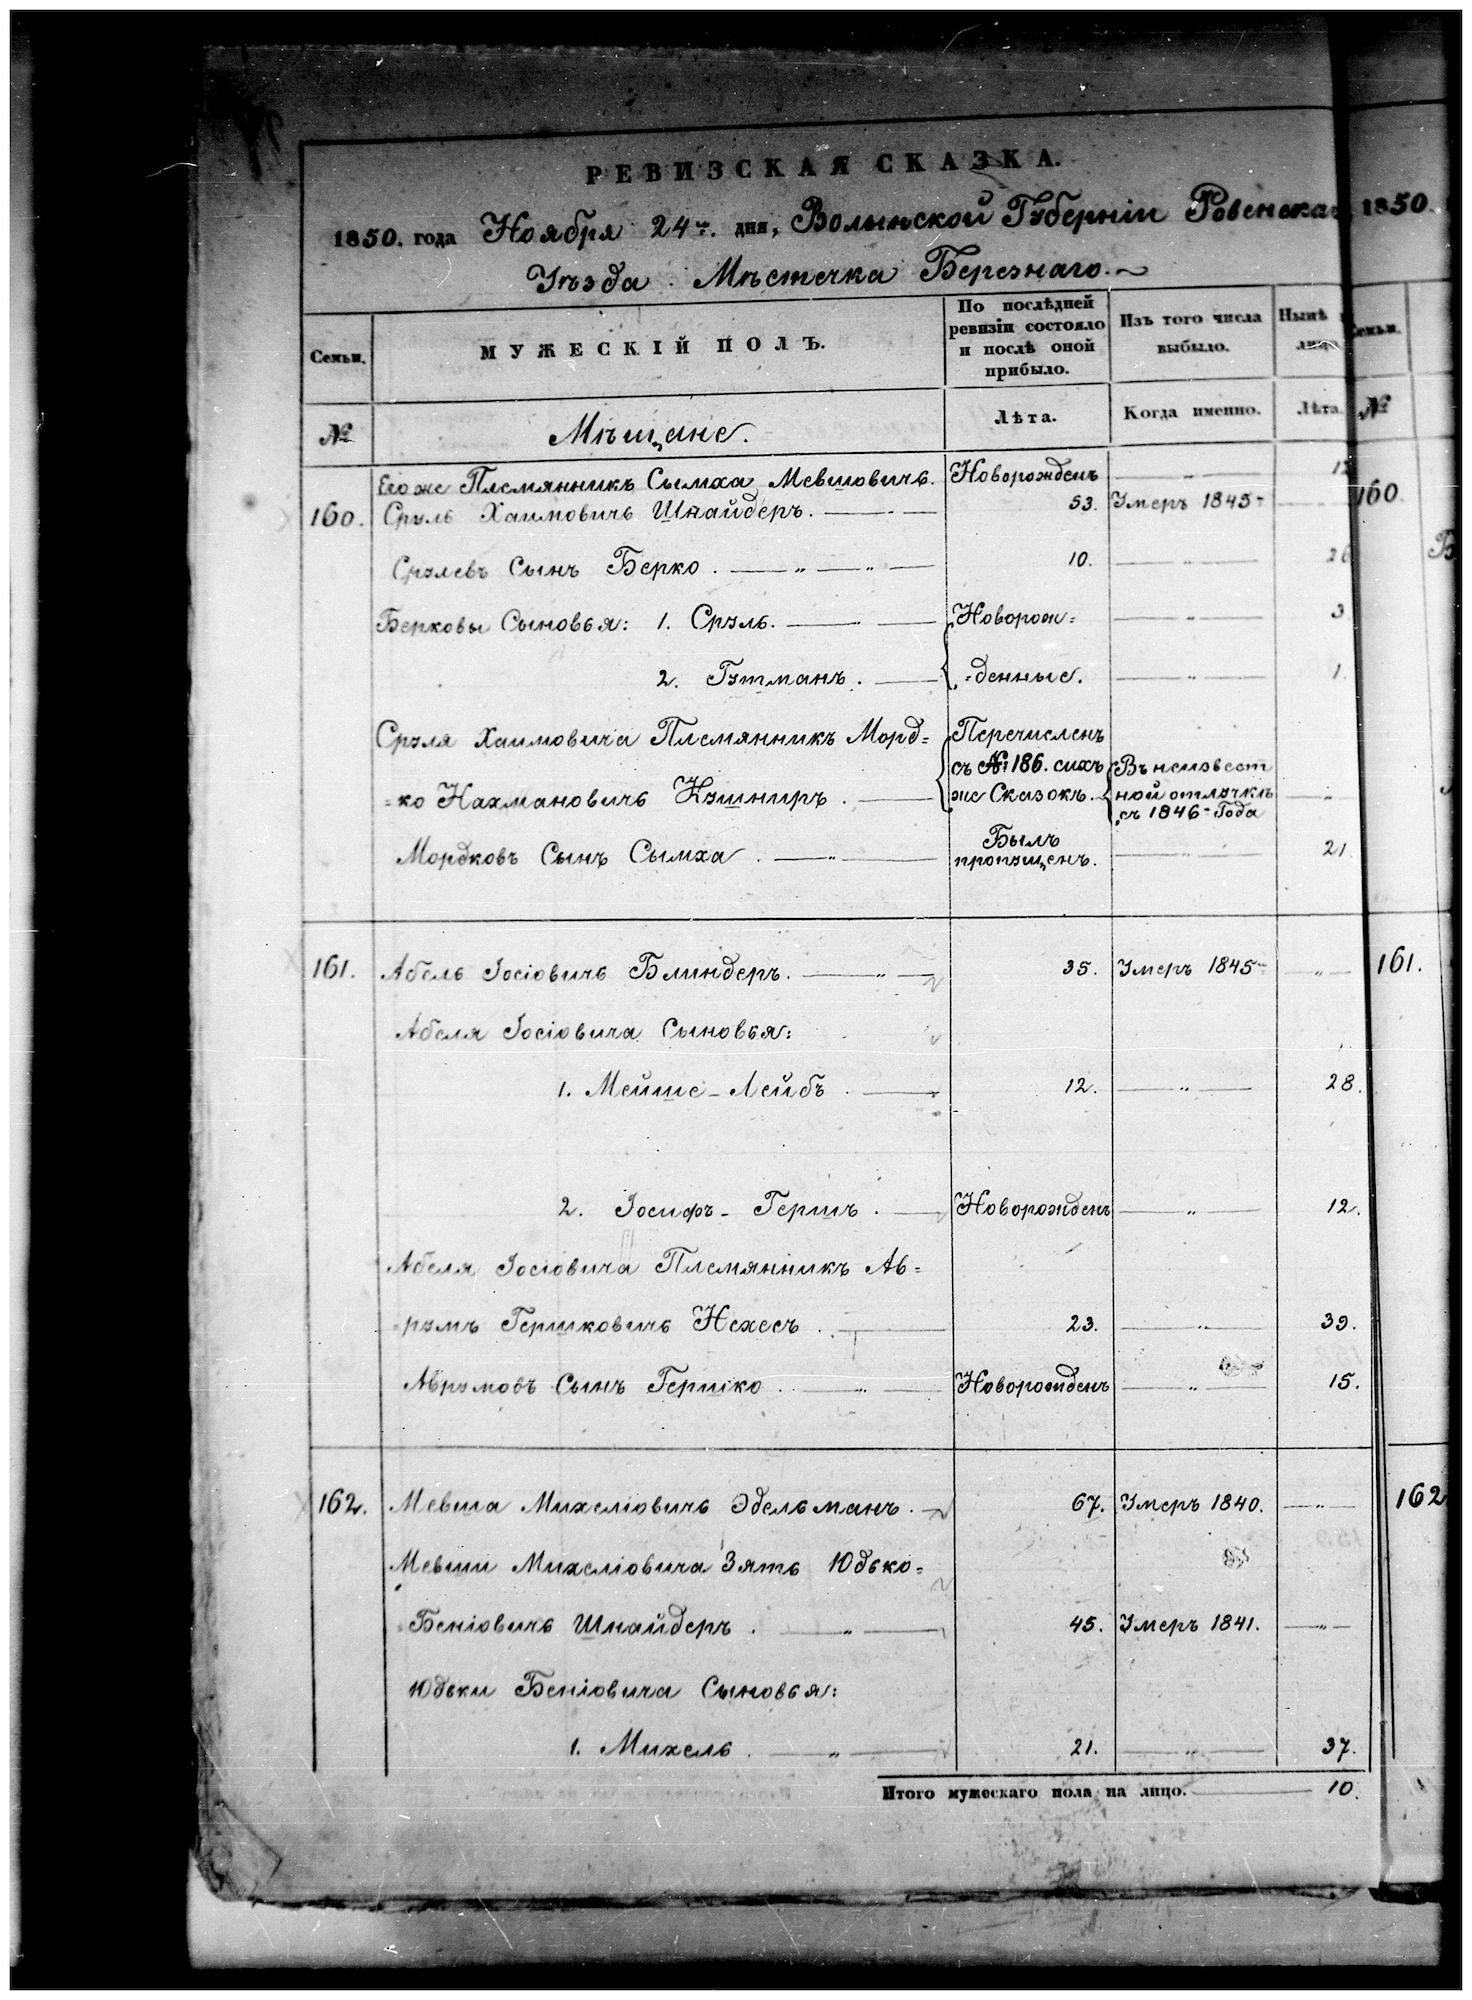 РЕВИЗСКАЯ СКАЗКА.
1850. года Ноября 24го. дня, Волынской Губернiи Ровенскаго 1850.
Уѣзда Мѣстечка Березнаго.
Семьи. МУЖЕСКIЙ ПОЛЪ. По послѣдней ревизiи состояло и послѣ оной прибыло. Изъ того числа выбыло. Нынѣ лиц Семьи.
№ Мѣщане. Лѣта. Когда именно. Лѣта. №
Его же Племянникъ Сымха Мевшовичъ. Новорожденъ — " —
160. Сруль Хаимовичъ Шнайдеръ. 53. Умеръ 1845 160
Срулевъ Сынъ Берко. — " — " — 10. — " — 26
Берковы Сыновья: 1. Сруль. Новорож= — " — 3
2. Гутманъ. =денные. — " — 1.
Сруля Хаимовича Племянникъ Морд= Перечисленъ
съ №186. сихъ Въ неизвест
=ко Нахмановичъ Кушниръ. же Сказокъ. ной отлучкѣ "
съ 1846 Года
Мордковъ Сынъ Сымха. — " — Былъ пропущенъ. — " — 21.
161. Абель Iосiовичъ Блиндеръ. — " — 35. Умеръ 1845 — " — 161.
Абеля Iосiовича Сыновья:
1. Мейше-Лейбъ. 12. — " — 28.
2. Iосифъ-Гершъ. Новорожденъ — " — 12.
Абеля Iосiовича Племянникъ Ав=
=румъ Гершковичъ Нехесъ. 23. — " — 39.
Аврумовъ Сынъ Гершко. — " — Новорожденъ — " — 15.
162. Мевша Михелiовичъ Эдельманъ. 67. Умеръ 1840. — " — 162
Мевши Михелiовича Зять Юдько=
Бенiовичъ Шнайдеръ. — " — 45. Умеръ 1841. — " —
Юдьки Бенiовича Сыновья:
1. Михель. — " — 21. — " — 37.
Итого мужескаго пола на лицо. 10.